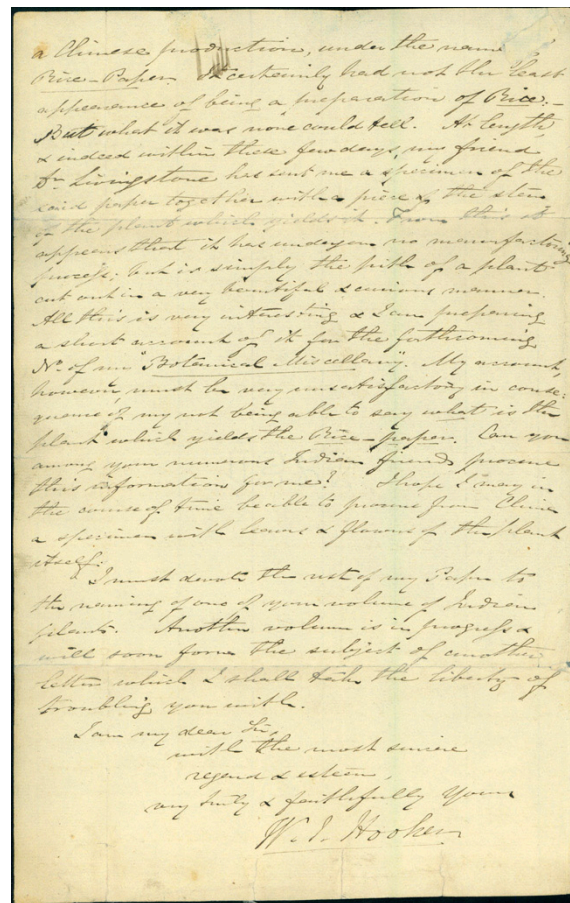 a Chinese production, under the name
Rice-Paper. It certainly had not the least
appearance of being a preparation of Rice.—
But what it was none could tell. At length
& indeed within these few days, my friend
Dr. Livingstone has sent me a specimen of the
said paper together with a piece of the stem
of the plant which yields it. From this it
appears that it has undergone no manufacturing
process: but is simply the pith of a plant
cut out in a very beautiful & curious manner.
All this is very interesting & I am preparing
a short account of it for the forthcoming
No. of my "Botanical Miscellany". My account,
however, must be very unsatisfactory in conse:
quence of my not being able to say what is the
plant which yields the Rice-paper. Can you
among your numerous Indian friends procure
this information for me? I hope I may in
the course of time be able to procure from China
a specimen with leaves & flowers of the plant
itself.
I must devote the rest of my Paper to
the naming of one of your volume of Indian
plants. Another volume is in progress &
will soon form the subject of another
letter which I shall take the liberty of
troubling you with.
I am my dear Sir,
with the most sincere
regard & esteem,
very truly & faithfully Yours
W. J. Hooker